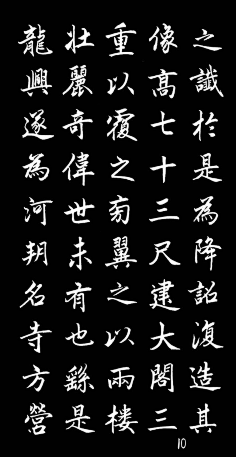 之讖於是為降詔復造其
像高七十三尺建大閣三
重以覆之旁翼之以兩楼
壯麗奇偉世未有也繇是
龍興遂為河朔名寺方營
10